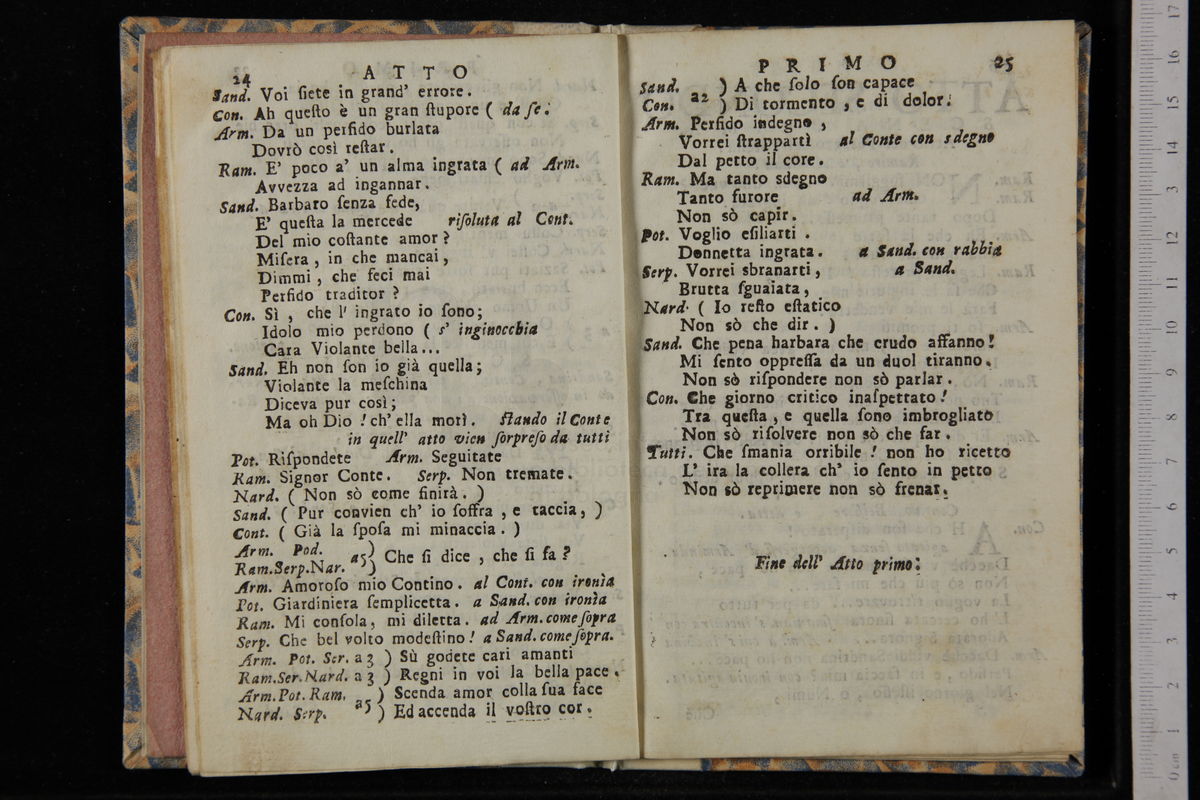 24 ATTO
Sand. Voi ſiete in grand' errore.
Con. Ah queſto è un gran ſtupore ( da ſe.
Arm. Da un perfido burlata
Dovrò così reſtar.
Ram. E' poco a' un alma ingrata ( ad Arm.
Avvezza ad ingannar.
Sand. Barbaro ſenza fede,
E' queſta la mercede riſoluta al Cont.
Del mio coſtante amor?
Miſera, in che mancai,
Dimmi, che feci mai
Perfido traditor?
Con. Sì, che l' ingrato io ſono;
Idolo mio perdono ( s' inginocchia
Cara Violante bella...
Sand. Eh non ſon io già quella;
Violante la meſchina
Diceva pur così;
Ma oh Dio! ch' ella morì. ſtando il Conte
in quell' atto vien ſorpreſo da tutti
Pot. Riſpondete Arm. Seguitate
Ram. Signor Conte. Serp. Non tremate.
Nard. ( Non sò come finirà. )
Sand. ( Pur convien ch' io ſoffra, e taccia, )
Cont. ( Già la ſpoſa mi minaccia. )
Arm. Pod. )
Ram.Serp.Nar. a5) Che ſi dice, che ſi fa?
Arm. Amoroſo mio Contino. al Cont. con ironìa
Pot. Giardiniera ſemplicetta. a Sand. con ironìa
Ram. Mi conſola, mi diletta. ad Arm. come ſopra
Serp. Che bel volto modeſtino! a Sand. come ſopra.
Arm. Pot. Ser. a 3 ) Sù godete cari amanti
Ram.Ser.Nard. a 3 ) Regni in voi la bella pace.
Arm.Pot.Ram. ) Scenda amor colla ſua face
Nard. Serp. a5 ) Ed accenda il voſtro cor.
PRIMO 25
Sand. ) A che ſolo ſon capace
Con. a2 ) Di tormento, e di dolor.
Arm. Perfido indegno,
Vorrei ſtrapparti al Conte con sdegno
Dal petto il core.
Ram. Ma tanto sdegno
Tanto furore ad Arm.
Non sò capir.
Pot. Voglio eſiliarti.
Donnetta ingrata. a Sand. con rabbia
Serp. Vorrei sbranarti, a Sand.
Brutta ſguaiata,
Nard. ( Io reſto eſtatico
Non sò che dir. )
Sand. Che pena harbara che crudo affanno!
Mi ſento oppreſſa da un duol tiranno.
Non sò riſpondere non sò parlar.
Con. Che giorno critico inaſpettato!
Tra queſta, e quella ſono imbrogliato
Non sò riſolvere non sò che far.
Tutti. Che ſmania orribile! non ho ricetto
L' ira la collera ch' io ſento in petto
Non sò reprimere non sò frenar.
Fine dell' Atto primo.